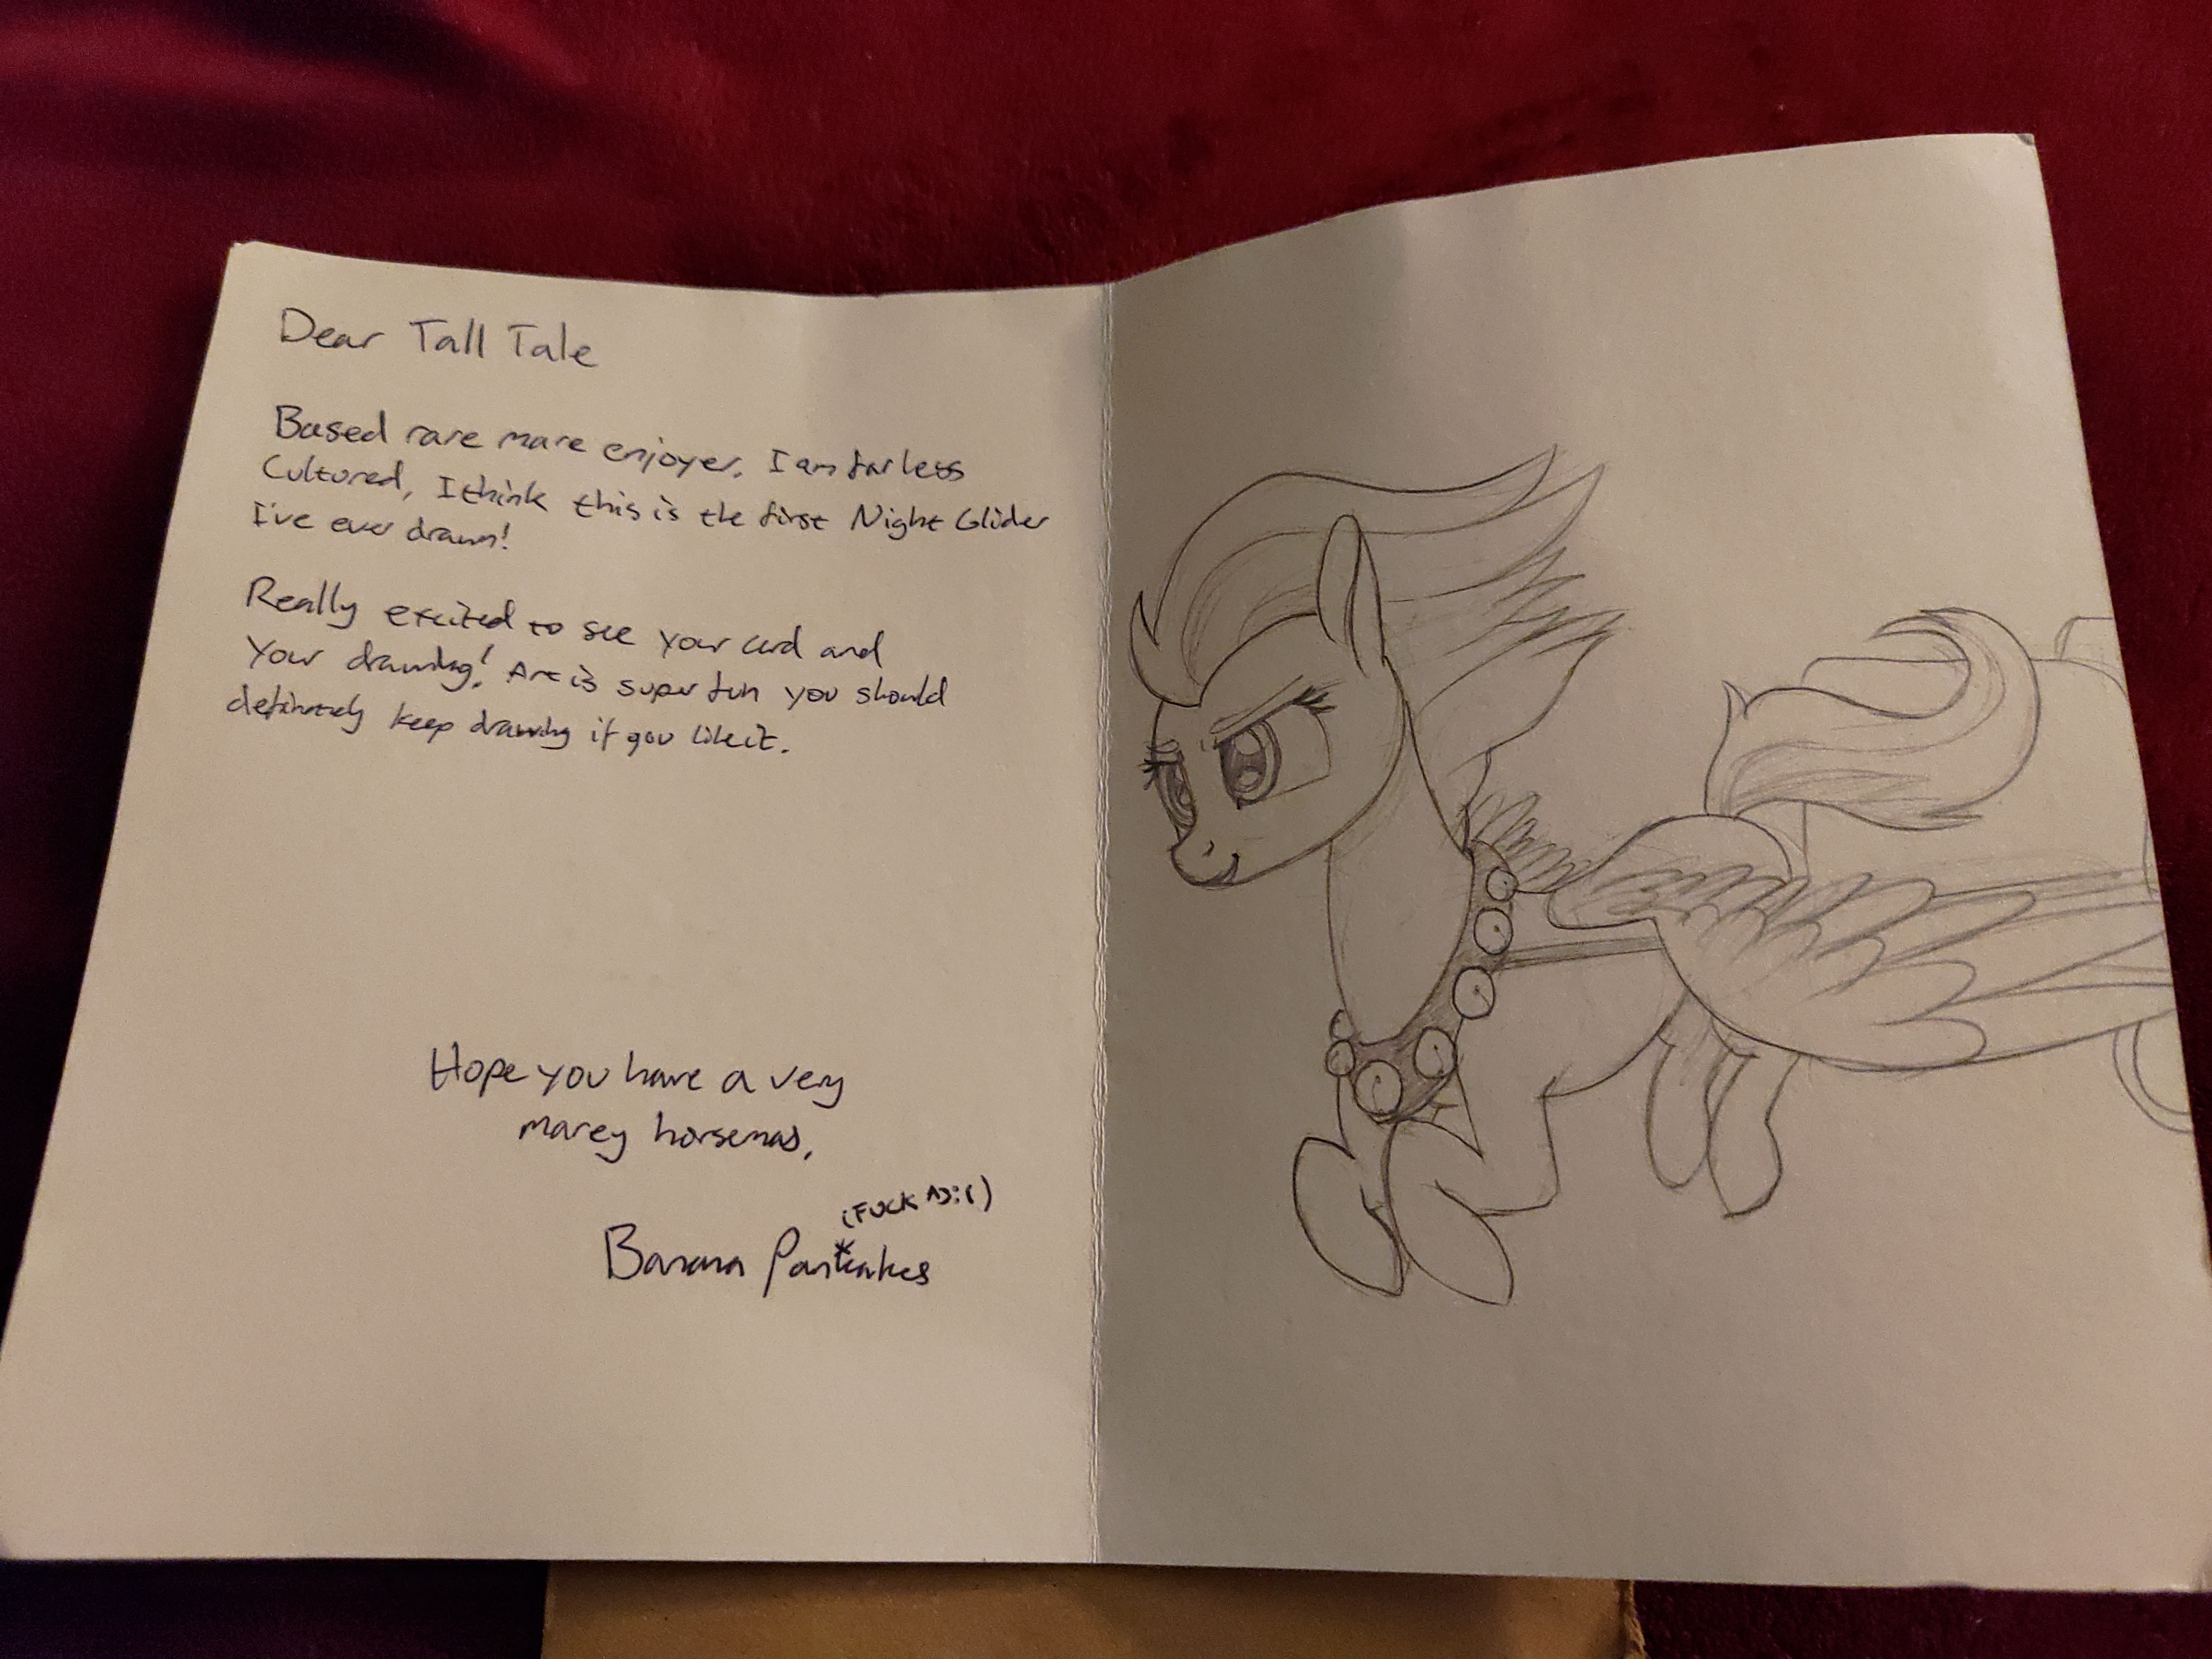 Dear Tall Tale
Based rare mare enjoyer. I am far less
Cultured, I think this is the first Night Glider
I've ever drawn!
Really excited to see your card and
Your drawing! Art is super fun you should
definitely keep drawing if you like it.
Hope you have a very
marey horsemas,
(FUCK
Banana Pancakes